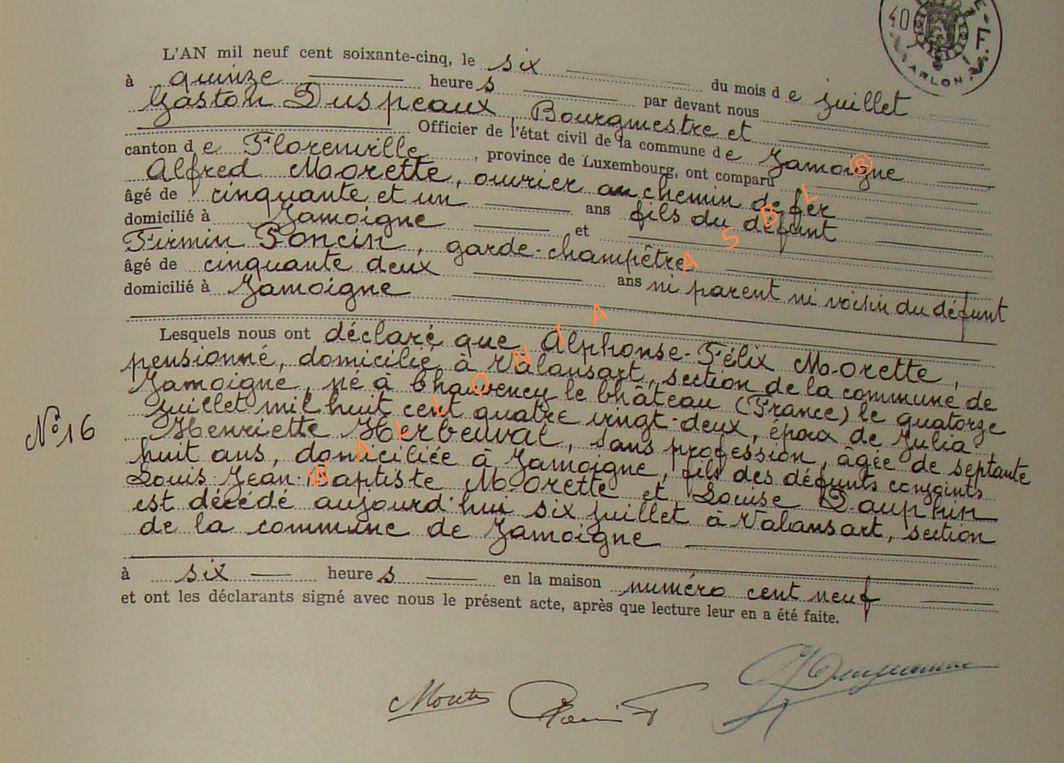 L'AN mil neuf cent soixante-cinq, le six du mois de juillet
à quinze heures par devant nous
Gaston Duspeaux, Bourgmestre et
Officier de l'état civil de la commune de Jamoigne
canton de Florenville, province de Luxembourg, ont comparu
Alfred Morette, ouvrier au chemin de fer
âgé de cinquante et un ans fils du défunt
domicilié à Jamoigne et
Firmin Poncin, garde-champêtre
âgé de cinquante deux ans ni parent ni voisin du défunt
domicilié à Jamoigne
Lesquels nous ont déclaré que Alphonse-Félix Morette,
pensionné, domicilié à Valansart, section de la commune de
Jamoigne, né à Chauvency le Château (France) le quatorze
juillet mil huit cent quatre vingt-deux, époux de Julia
Henriette Herbeuval, sans profession, âgée de septante
huit ans, domiciliée à Jamoigne, fils des défunts conjoints
Louis Jean-Baptiste Morette et Louise Dauphin
est décédé aujourd'hui six juillet à Valansart, section
de la commune de Jamoigne
N° 16
à six heures en la maison numéro cent neuf
et ont les déclarants signé avec nous le présent acte, après que lecture leur en a été faite.
WALLONIA ASBL ®
ARLON